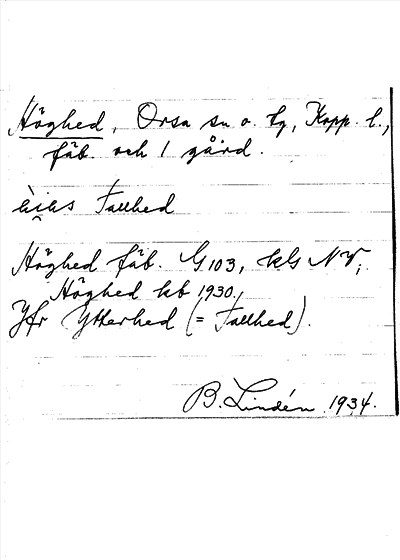 Höghed, Orsa sn o. tg, Kopp. l.,
fäb. och 1 gård.
Tallhed
Höghed fäb. G103, kls NV;
Höghed kb 1930.
Jfr Ytterhed (= Tallhed).
B. Lindén 1934.